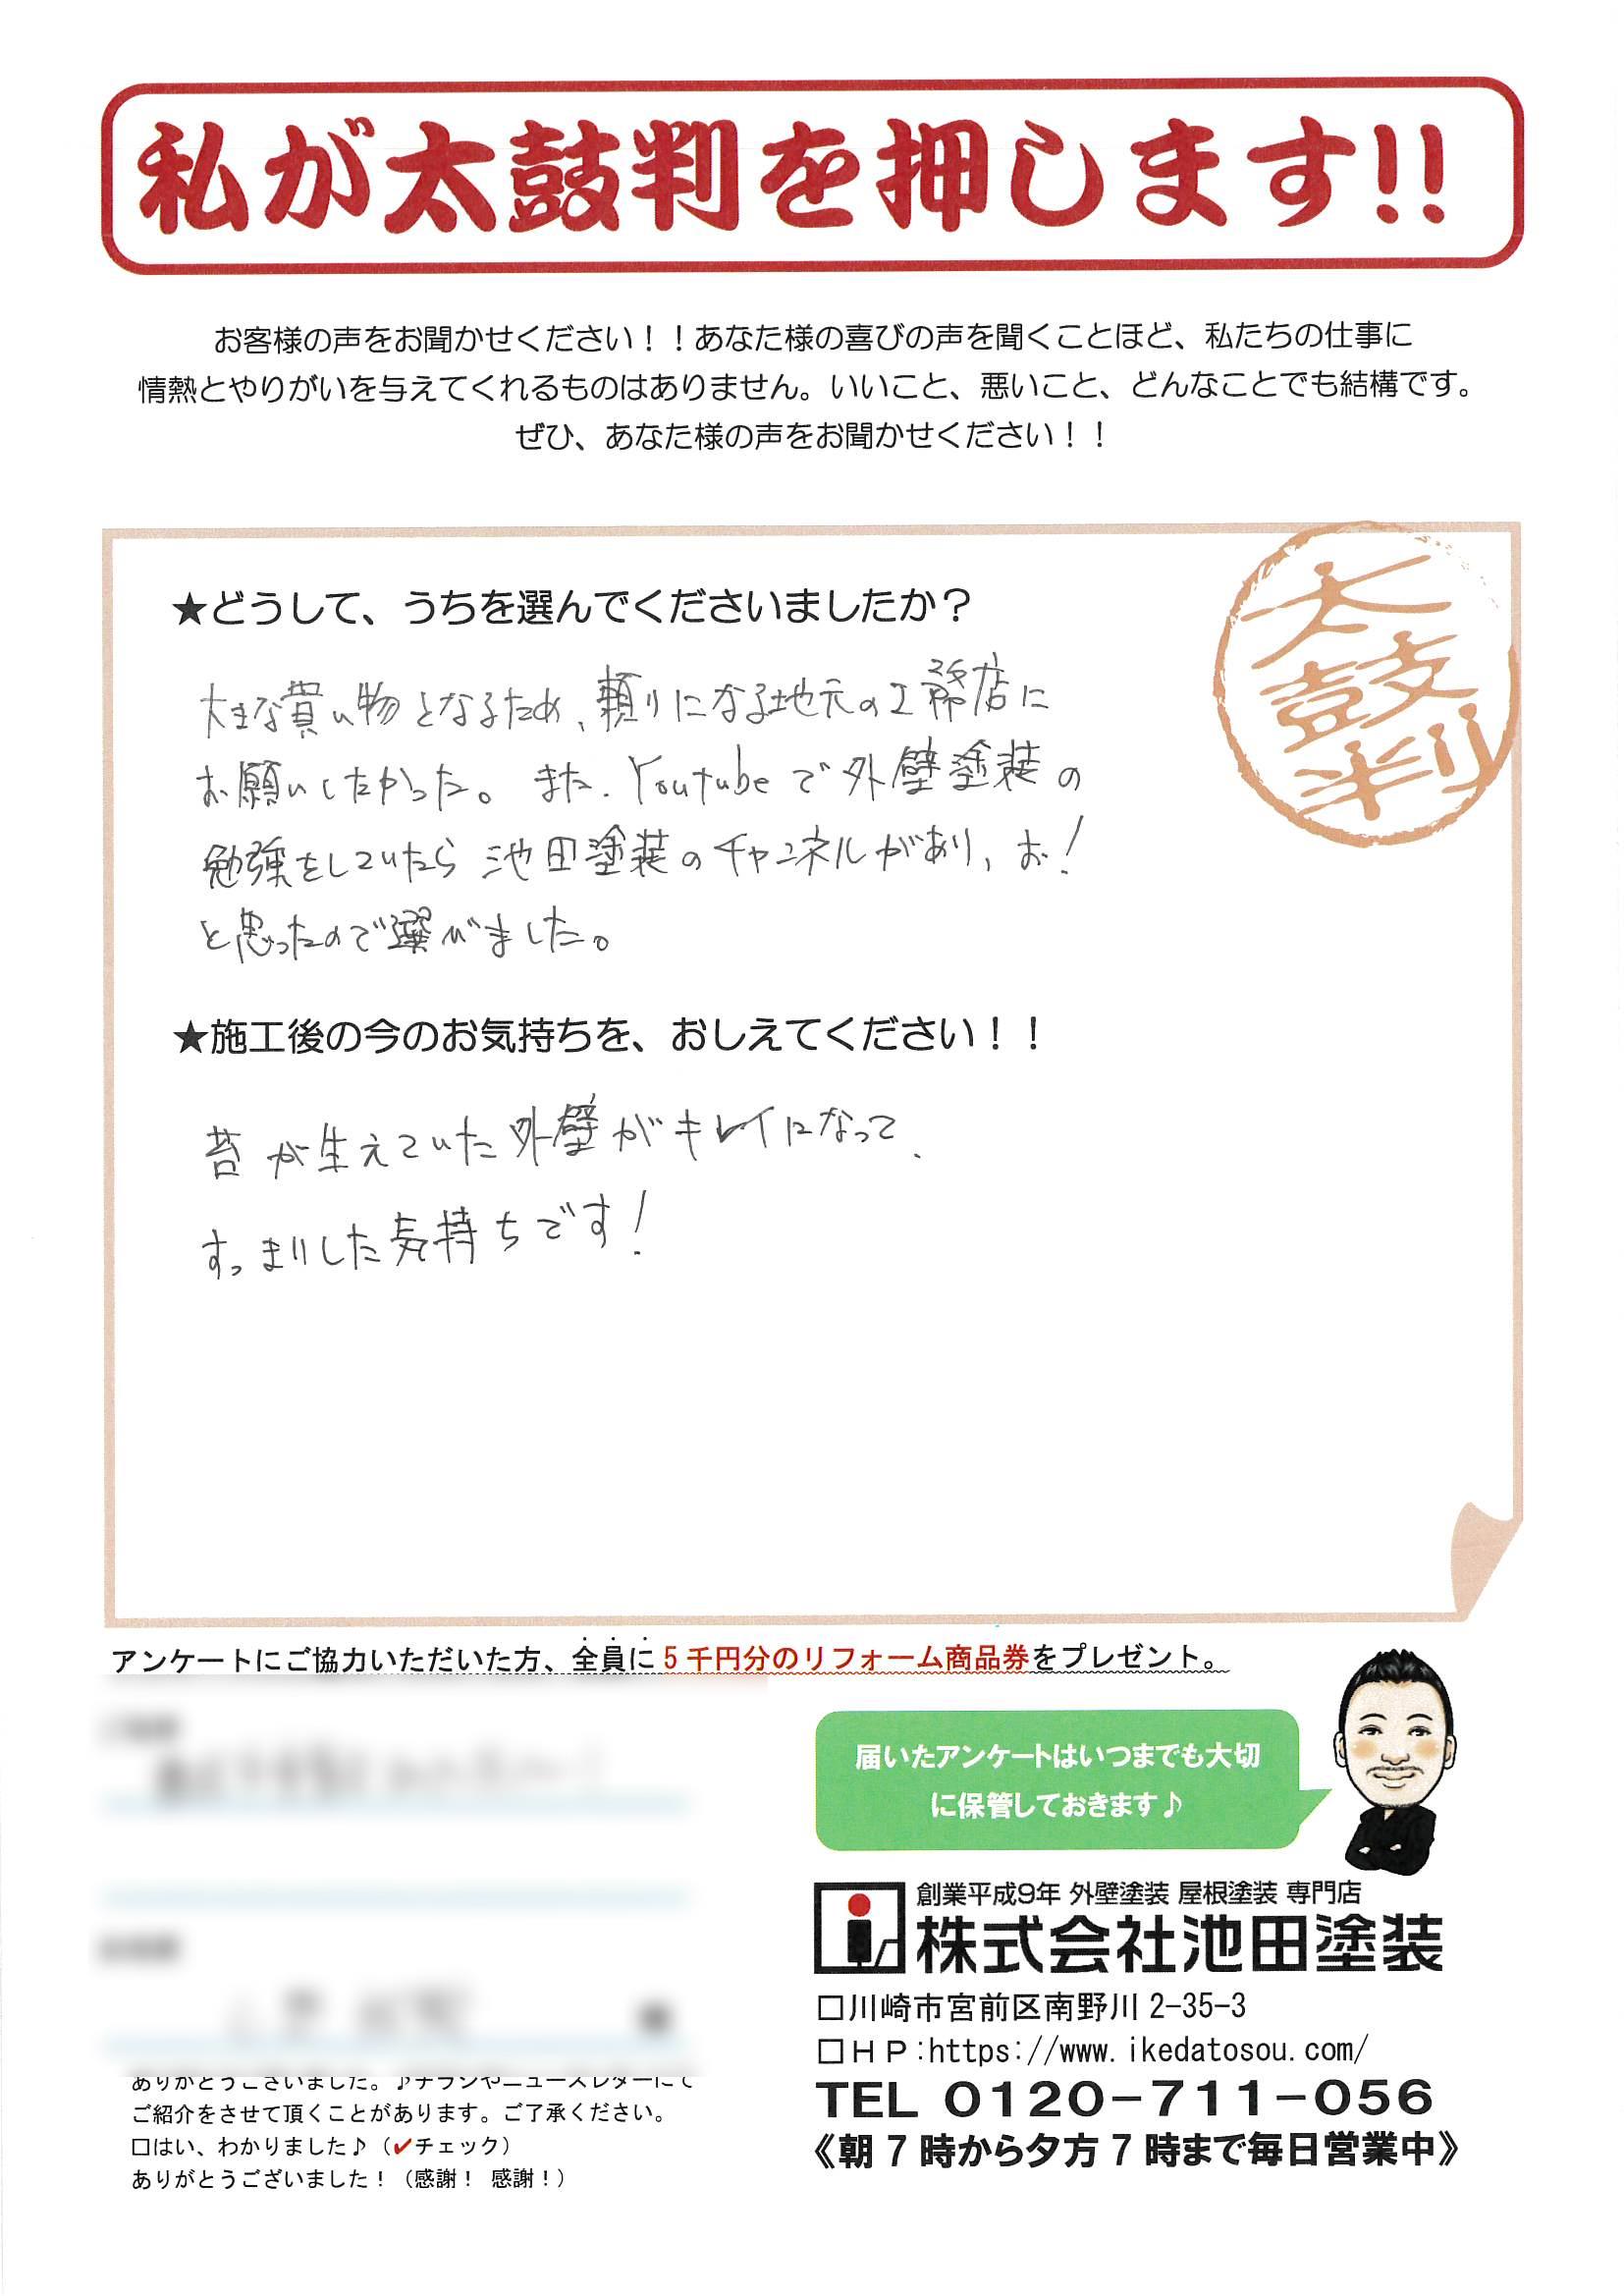 私が太鼓判を押します!!
お客様の声をお聞かせください！！あなた様の喜びの声を聞くことほど、私たちの仕事に
情熱とやりがいを与えてくれるものはありません。いいこと、悪いこと、どんなことでも結構です。
ぜひ、あなた様の声をお聞かせください！！
太鼓判
★どうして、うちを選んでくださいましたか？
大きな買い物となるため、頼りになる地元の工務店に
お願いしたかった。また、Youtubeで外壁塗装の
勉強をしていたら池田塗装のチャンネルがあり、お！
と思ったので選びました。
★施工後の今のお気持ちを、おしえてください！！
苔が生えていた外壁がキレイになって、
すっきりした気持ちです！
アンケートにご協力いただいた方、全員に5千円分のリフォーム商品券をプレゼント。
届いたアンケートはいつまでも大切
に保管しておきます♪
創業平成9年 外壁塗装 屋根塗装 専門店
株式会社池田塗装
□川崎市宮前区南野川2-35-3
□ＨＰ:https://www.ikedatosou.com/
TEL 0120-711-056
《朝7時から夕方7時まで毎日営業中》
ありがとうございました。♪チラシやニュースレターにて
ご紹介をさせて頂くことがあります。ご了承ください。
□はい、わかりました♪（✔チェック）
ありがとうございました！（感謝！ 感謝！）